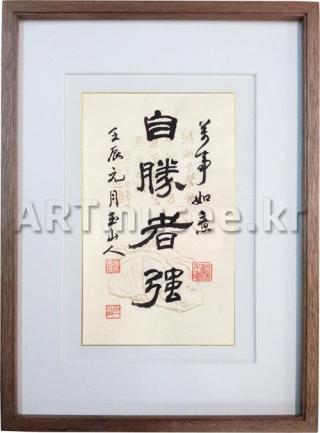 萬事如意
自勝者強
壬辰元月玉山人
ARTmusee.kr